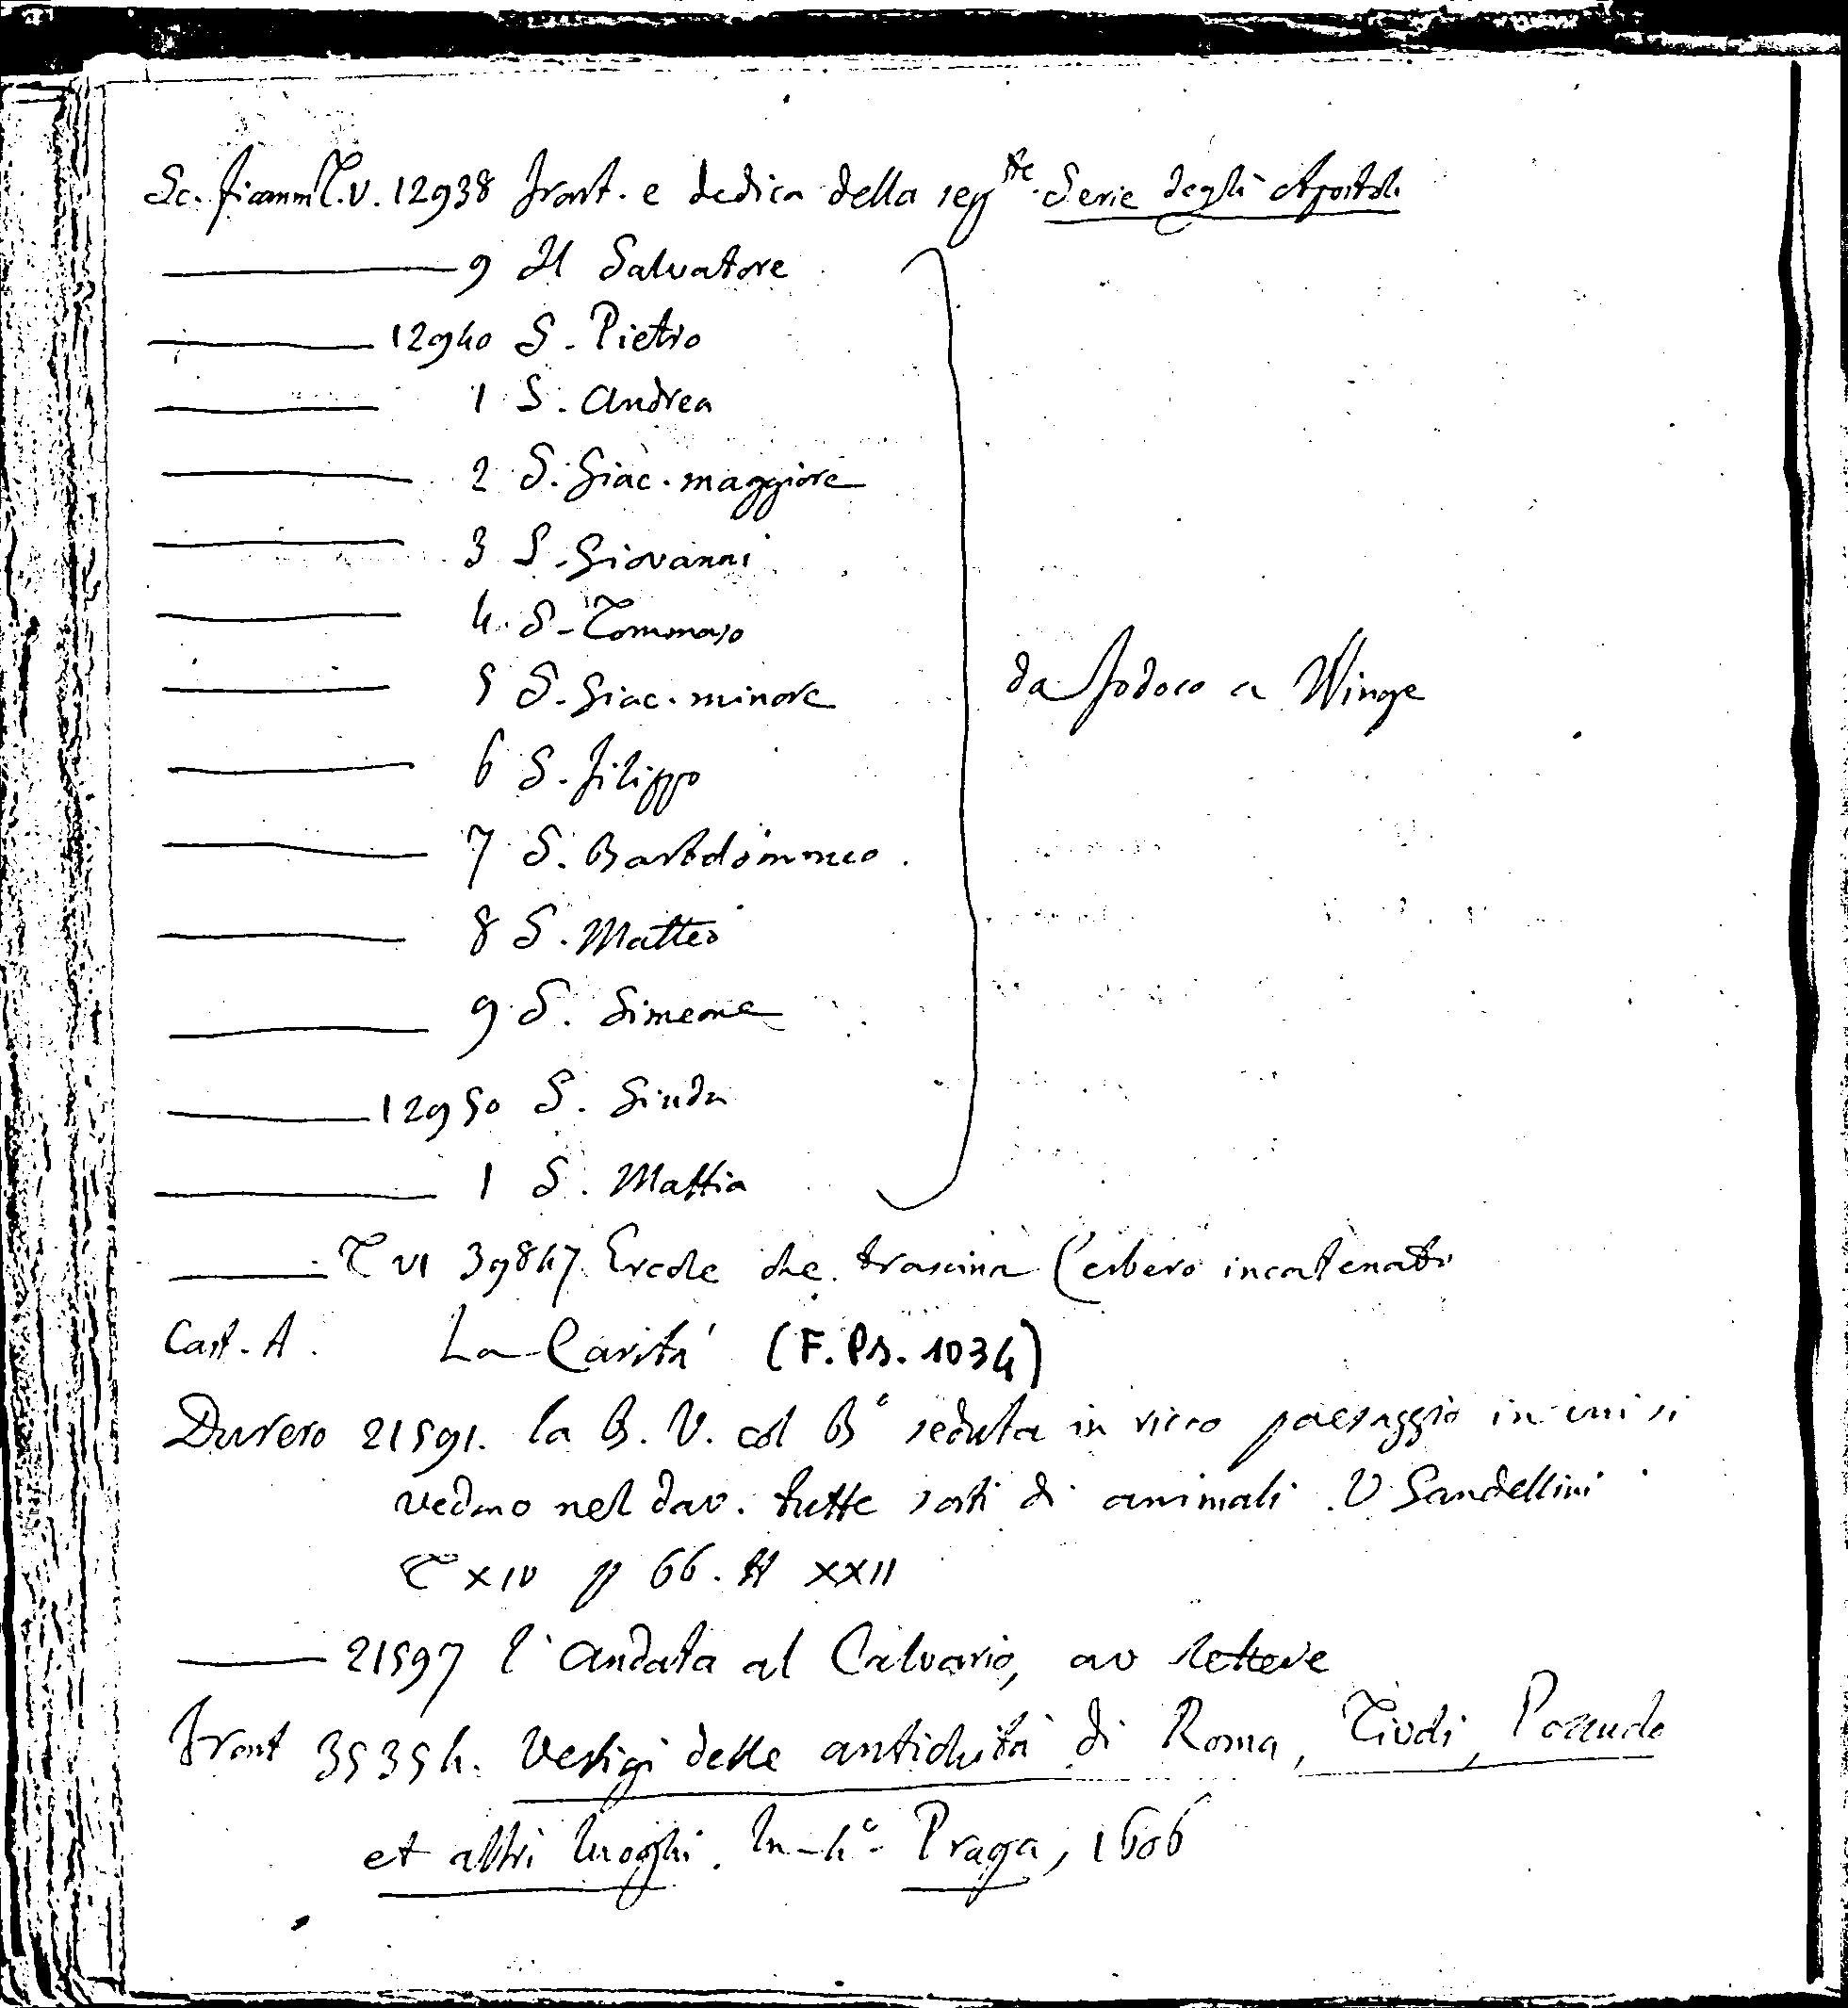 Sc. fiamm T. V. 12938 front. e dedica della segte Serie degli Apostoli
9 Il Salvatore
12940 S. Pietro
1 S. Andrea
2 S. Giac. maggiore
3 S. Giovanni
4 S. Tommaso
5 S. Giac. minore
da Jodoco a Winge
6 S. Filippo
7 S. Bartolommeo
8 S. Matteo
9 S. Simeone
12950 S. Giuda
1 S. Mattia
T VI 39847 Ercole che trascina Cerbero incatenato
Cart. A. La Carità (F. Ps. 1034)
Durero 21591. la B. V. col Bº seduta in ricco paesaggio in cui si
vedono nel dav. tutte sorti di animali. V. Gandellini
T XIV p 66. N XXII
21597 l'Andata al Calvario, av lettere
Front 35354. Vestigi delle antichità di Roma, Tivoli, Pozzuolo
et altri luoghi. In-4º - Praga, 1606